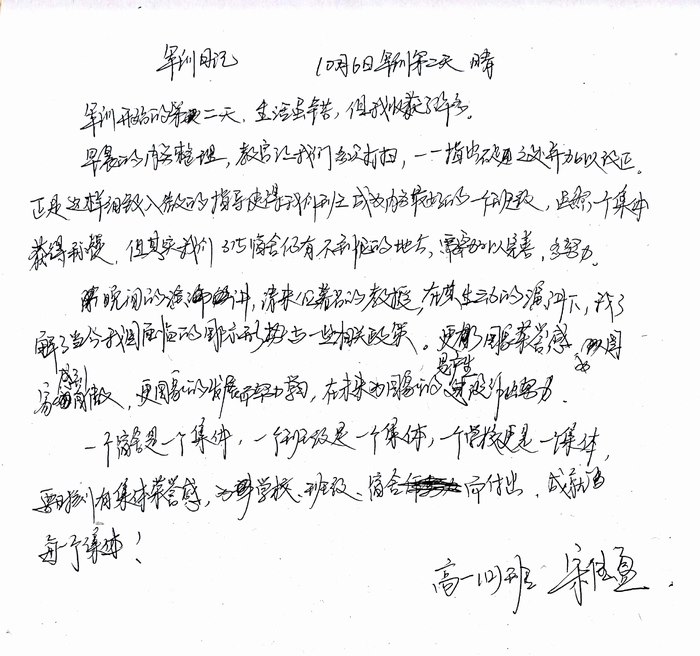 军训日记 10月6日军训第二天 晴
军训开始的第二天,生活虽苦,但我收获了许多。
早晨的内务整理,教官让我们去打扫,一一指出不足之处并加以改正。
正是这样细致入微的指导使得我们班成为内务最好的一个班级,虽然个集体
获得称赞,但其实我们315宿舍仍有不到位的地方,需要加以完善,多努力。
晚间的演讲,请来位著名的教授,在其生动的演讲下,我了
解了当今我国面临的国际形势与一些相关政策。更有了国家荣誉感,为国
家感到骄傲,更国家的发展而努力学习,在未来为国家的建设作出努力。
一个宿舍是一个集体,一个班级是一个集体,一个学校更是一个集体,
要时刻有集体荣誉感,为学校、班级、宿舍而付出,成就
每一个集体!
高一(2)班 宋佳盈